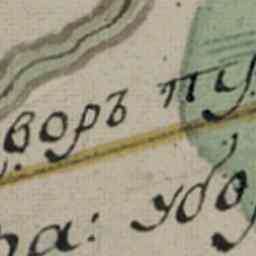 воръ пу
ра: убо